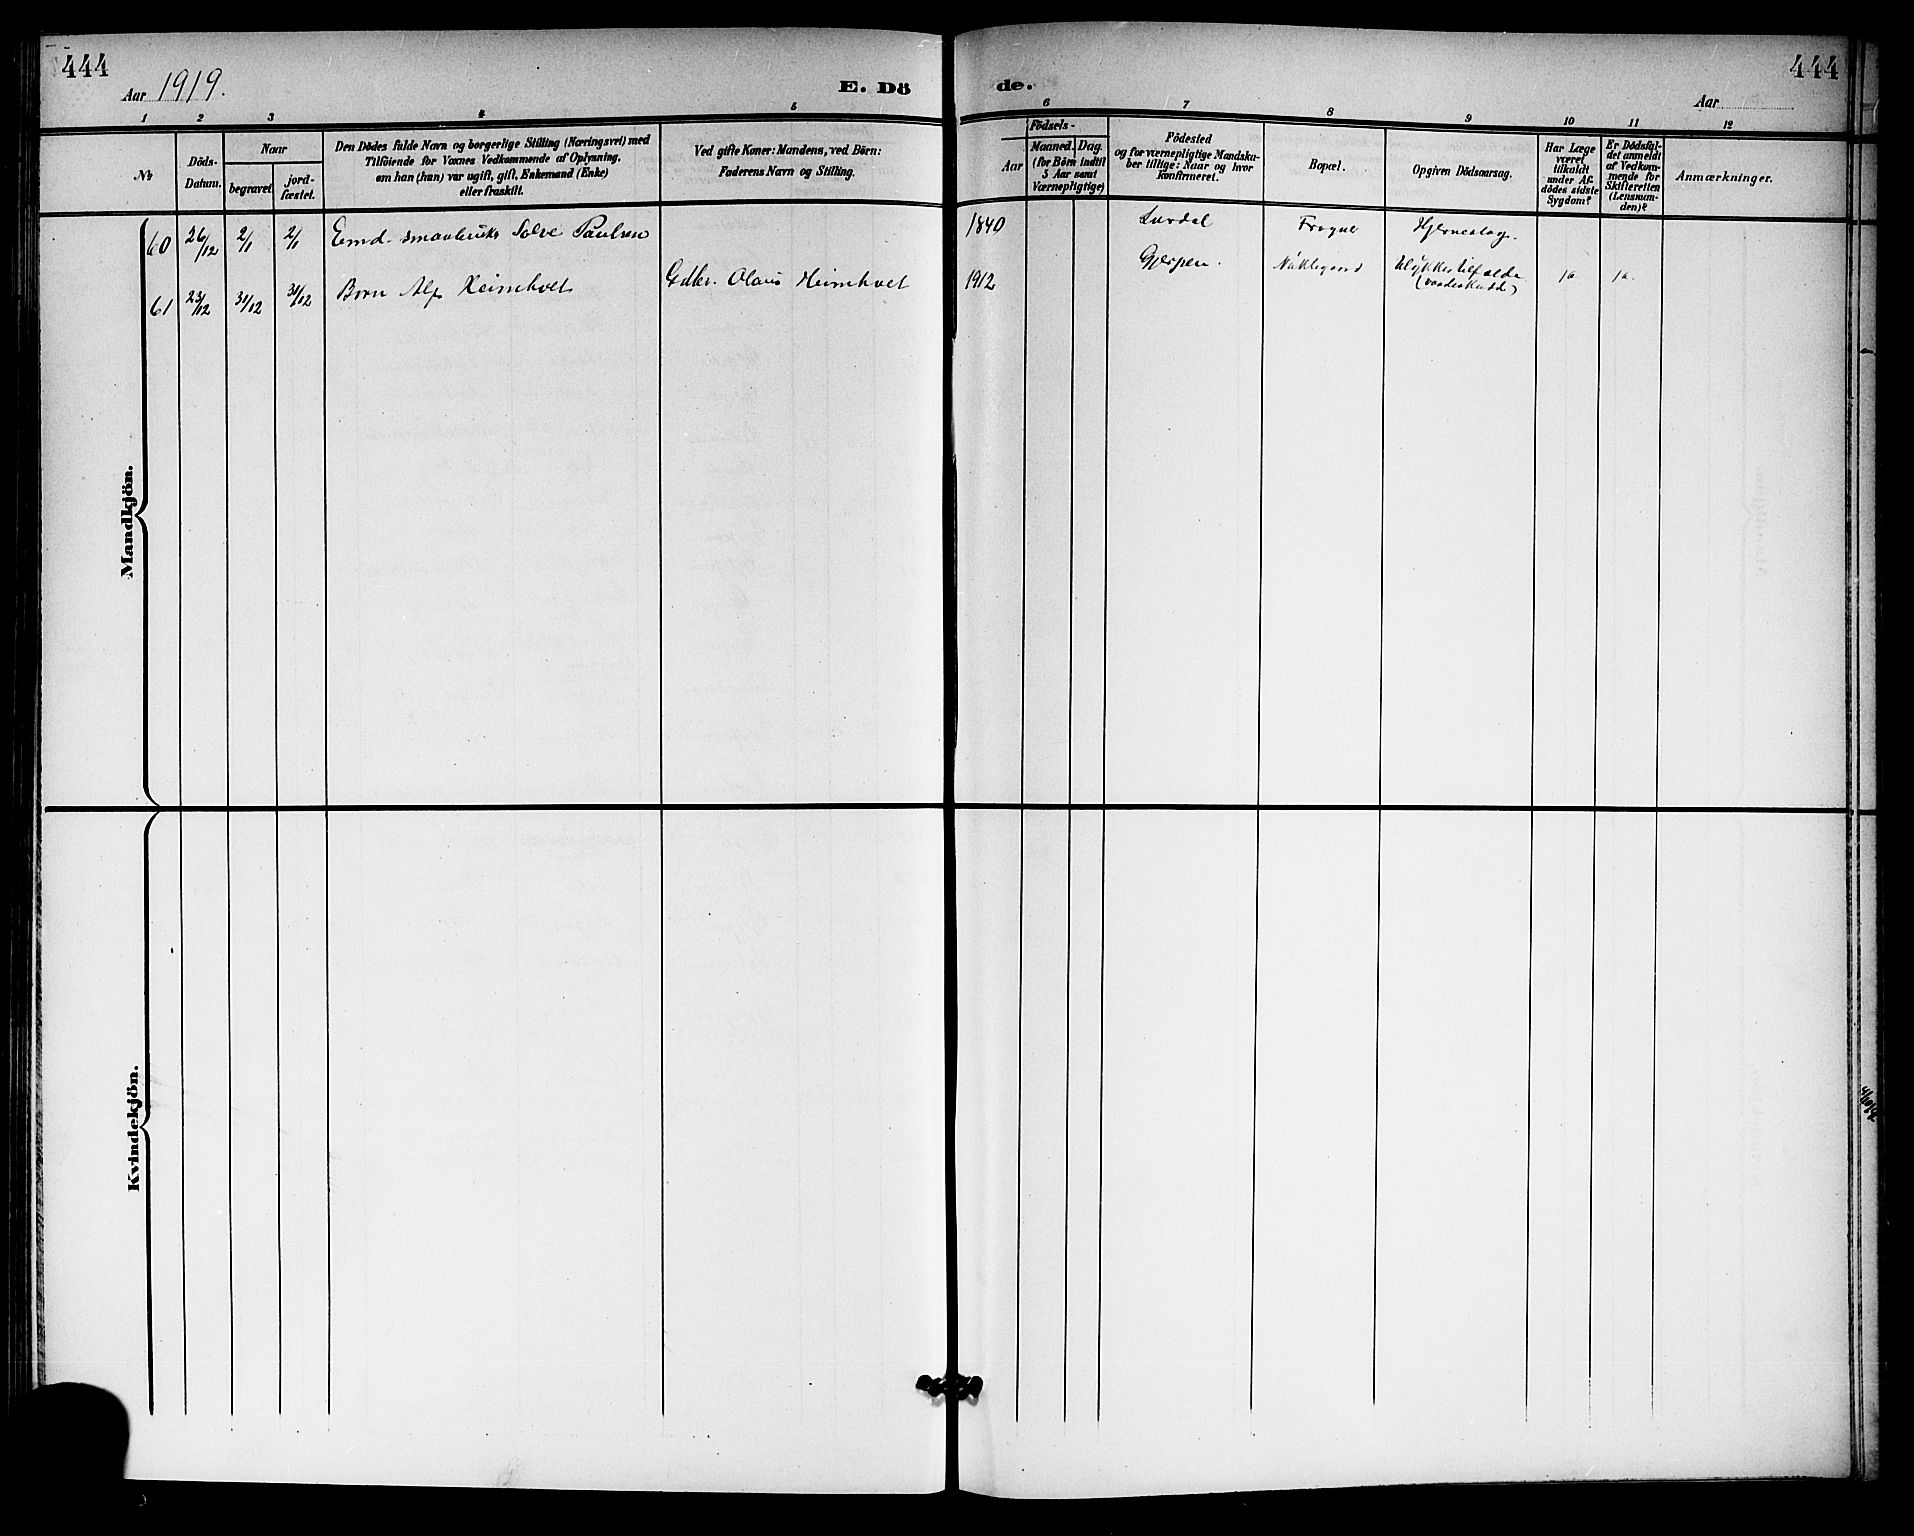 444
Aar 1919.
E. Dö
de.
444
Aar
1 2 3 4 5 6 7 8 9 10 11 12
No
Döds-
Datum.
Naar
begravet
jord-
fæstet.
Den Dödes fulde Navn og borgerlige Stilling (Næringsvei) med
Tilföiende for Voxnes Vedkommende af Oplysning,
om han (hun) var ugift, gift, Enkemand (Enke)
eller fraskilt.
Ved gifte Koner: Mandens, ved Börn:
Faderens Navn og Stilling.
Födsels-
Aar
Maaned.
Dag.
(for Börn indtil
5 Aar samt
Værnepligtige)
Födested
og for værnepligtige Mandska-
ber tillige: Naar og hvor
konfirmeret.
Bopæl.
Opgiven Dödsaarsag.
Har Læge
været
tilkaldt
under Af-
dödes sidste
Sygdom?
Er Dödsfal-
det anmeldt
af Vedkom-
mende for
Skifteretten
(Lensman-
den)?
Anmærkninger.
Mandkjön.
60 26/12 2/1 2/1 Emd. smaabruker Solve Paulsen 1840 Frogner Hjerneslag.
61 23/12 31/12 31/12 Barn Alf Heimholt Gdbr. Olaus Heimholt 1912 Gjerpen. Ulykkestilfælde
(vaadeskudd) ja ja.
Kvindekjön.